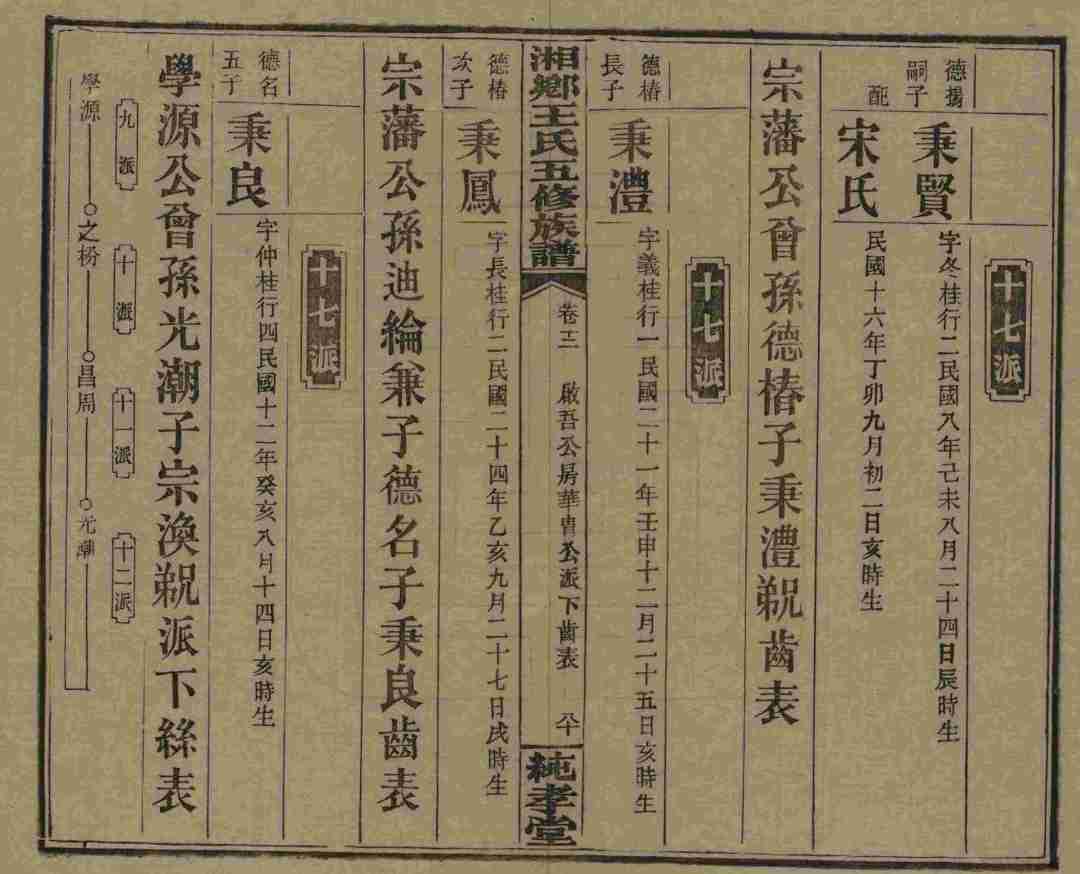 十七派
德揚嗣子
秉賢
字冬桂行二民國八年己未八月二十四日辰時生
配
宋氏
民國十六年丁卯九月初二日亥時生
宗藩公曾孫德椿子秉澧覡齒表
十七派
德椿長子
秉澧
字義桂行一民國二十一年壬申十二月二十五日亥時生
湘鄉王氏五修族譜
卷十三
啟吾公房華胄公派下齒表
六十
純孝堂
德椿次子
秉鳳
字長桂行二民國二十四年乙亥九月二十七日戌時生
宗藩公孫迪綸兼子德名子秉良齒表
十七派
德名五子
秉良
字仲桂行四民國十二年癸亥八月十四日亥時生
學源公曾孫光潮子宗渙覡派下絲表
九派
十派
十一派
十二派
學源
之枌
昌周
光潮